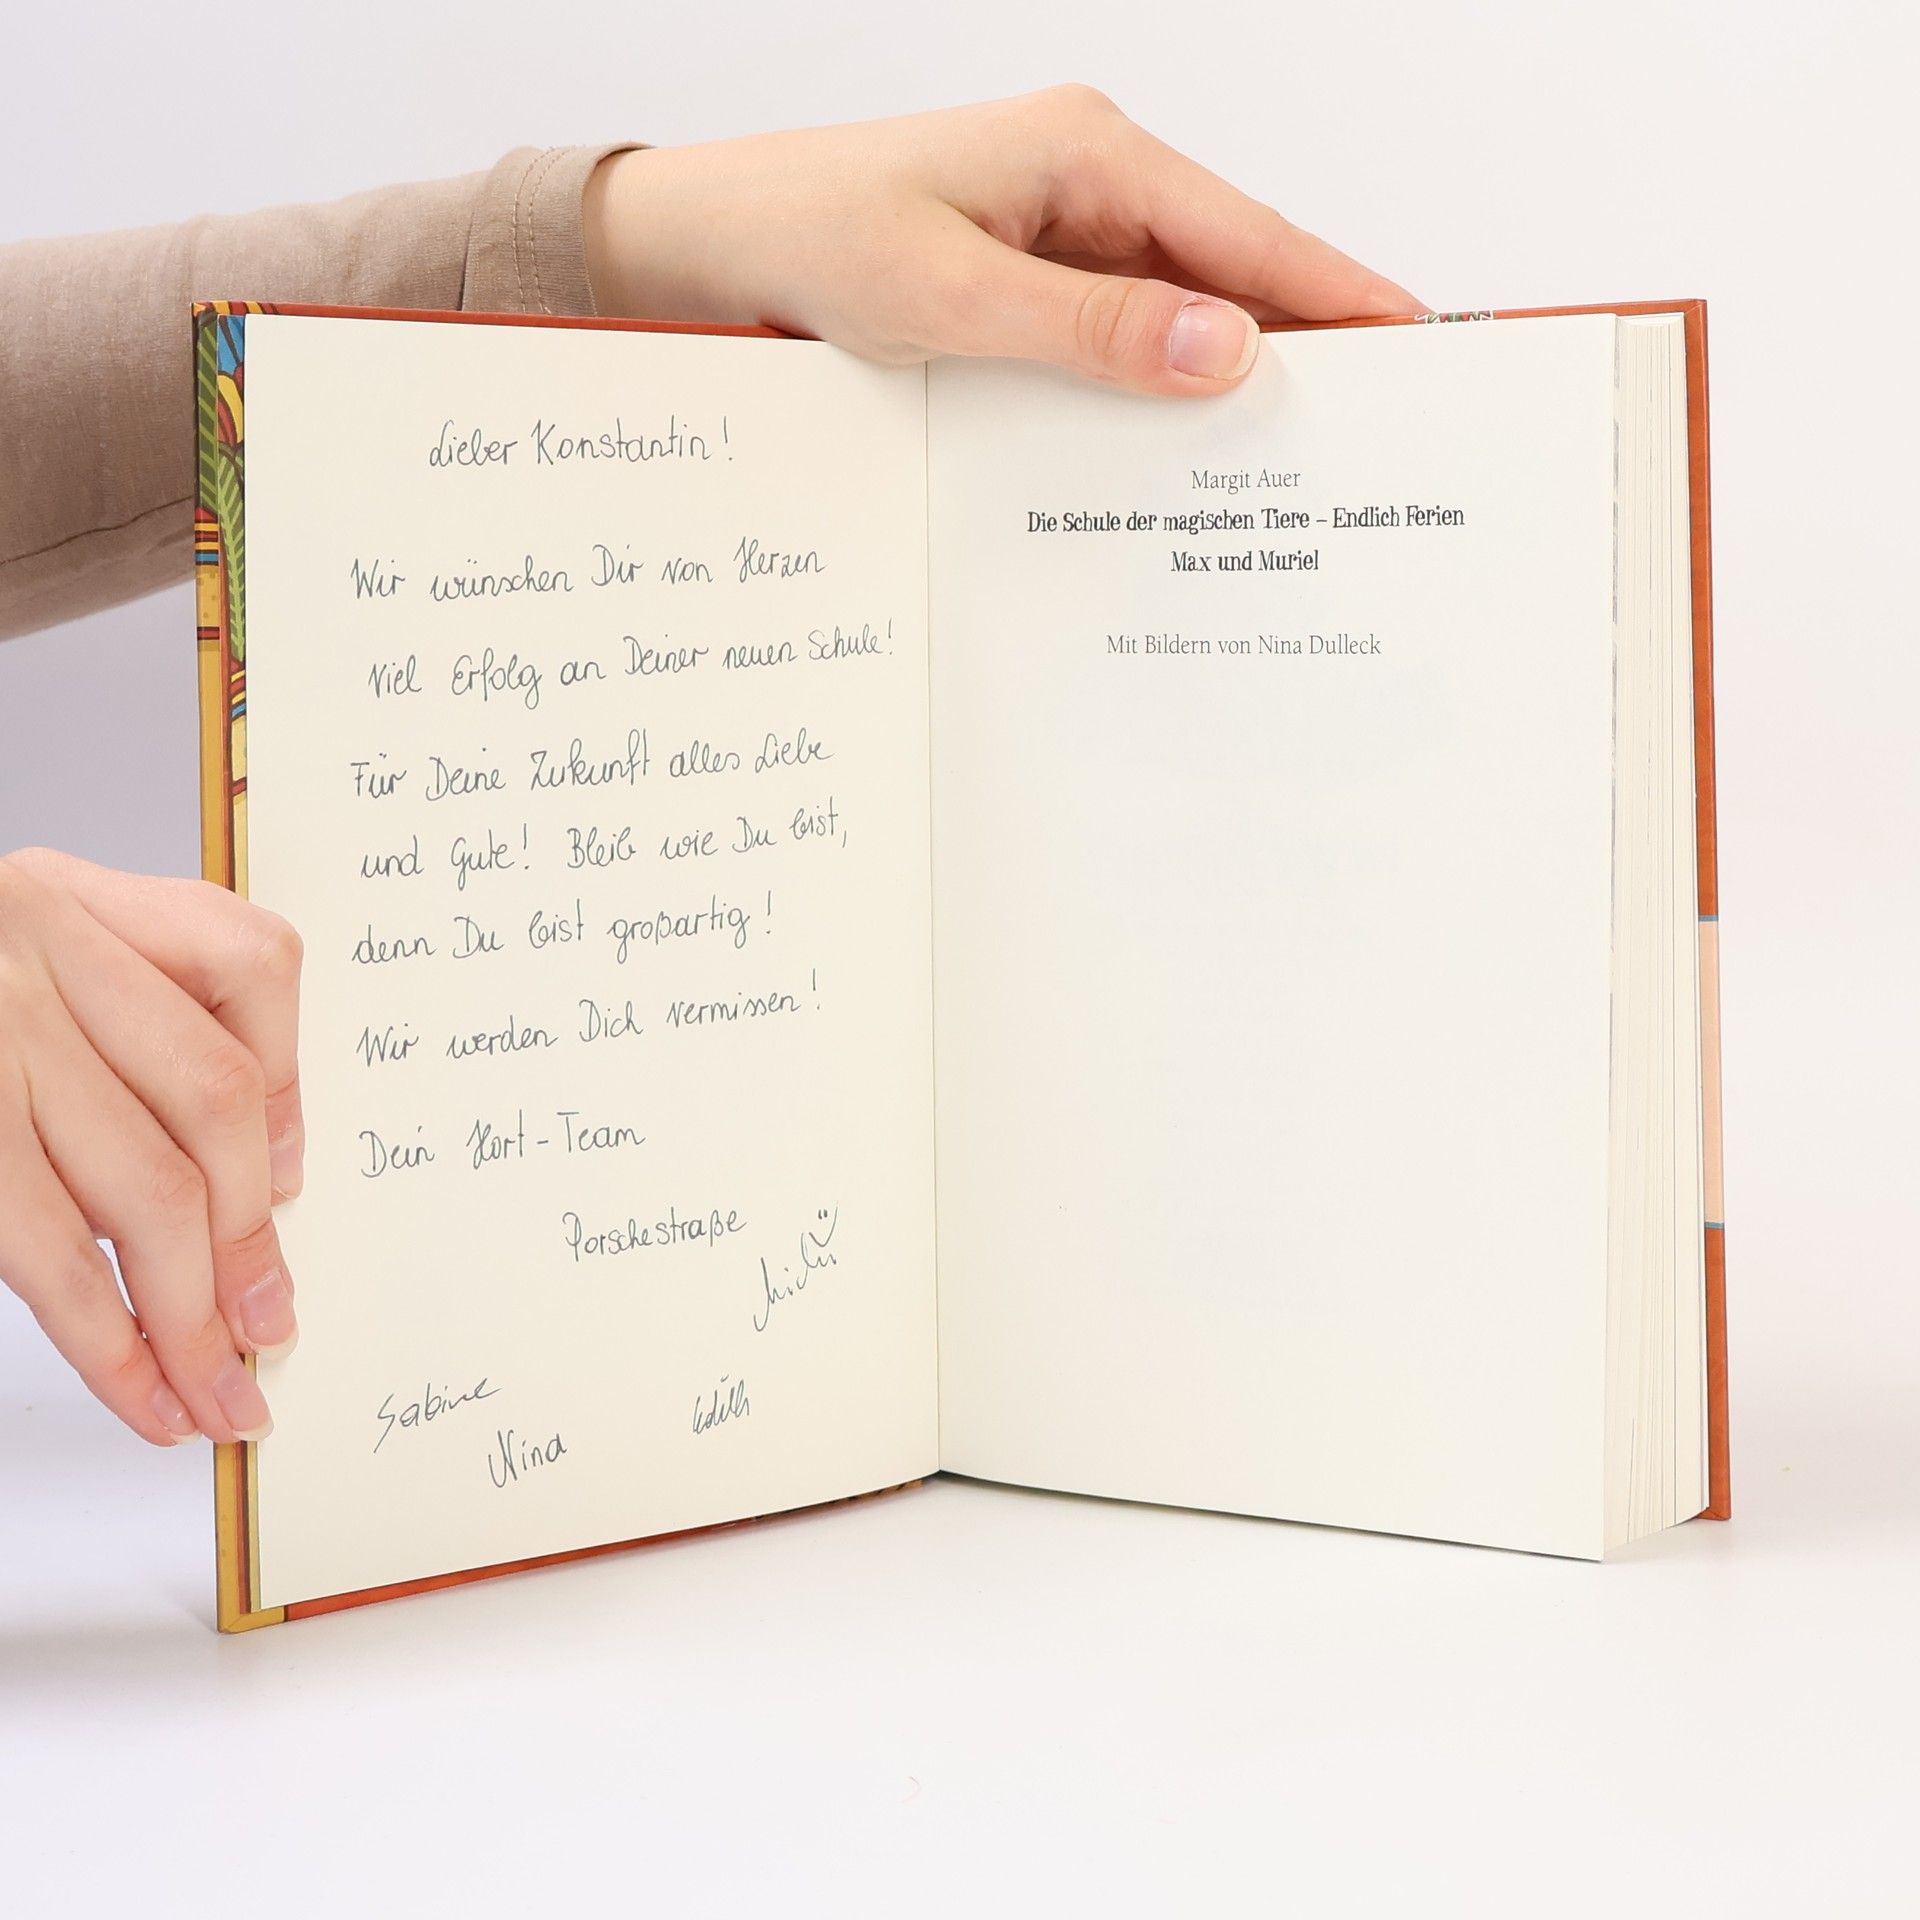 Lieber Konstantin!
Wir wünschen Dir von Herzen
viel Erfolg an Deiner neuen Schule!
Für Deine Zukunft alles Liebe
und Gute! Bleib wie Du bist,
denn Du bist großartig!
Wir werden Dich vermissen!
Dein Hort-Team
Porschestraße
Sabine
Nina
Edith
Margit Auer
Die Schule der magischen Tiere – Endlich Ferien
Max und Muriel
Mit Bildern von Nina Dulleck